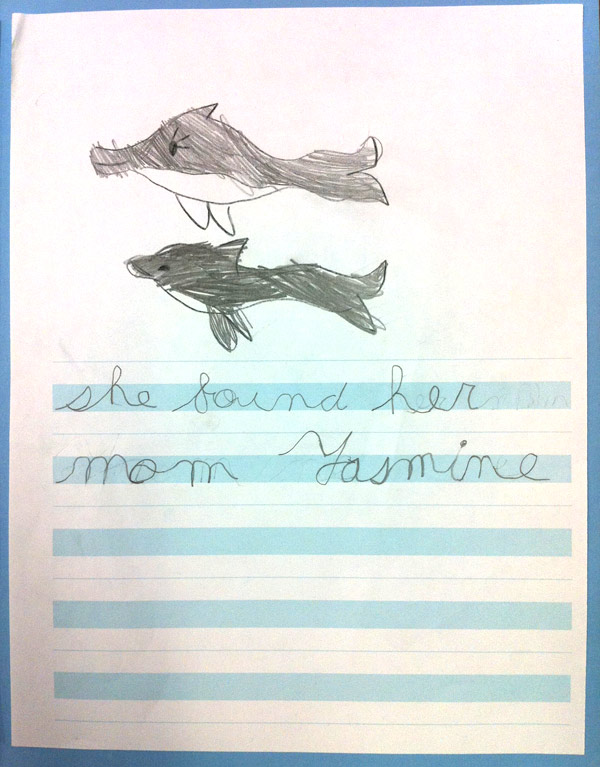 she bound her
mom Yasmine